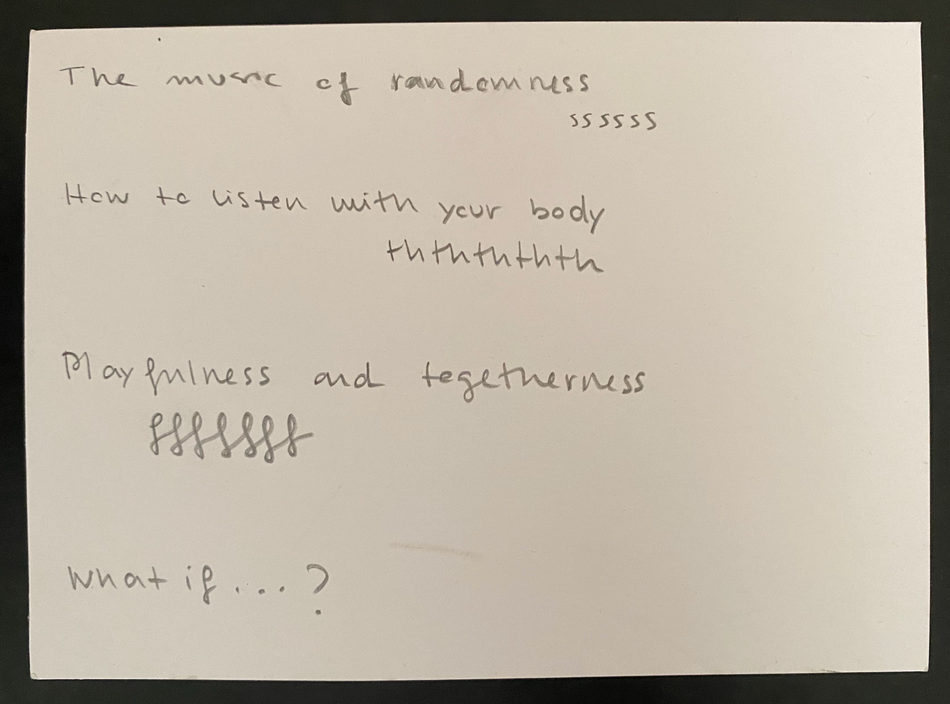 The music of randomness
ssssss
How to listen with your body
ththththth
Playfulness and togetherness
fffffff
What if...?